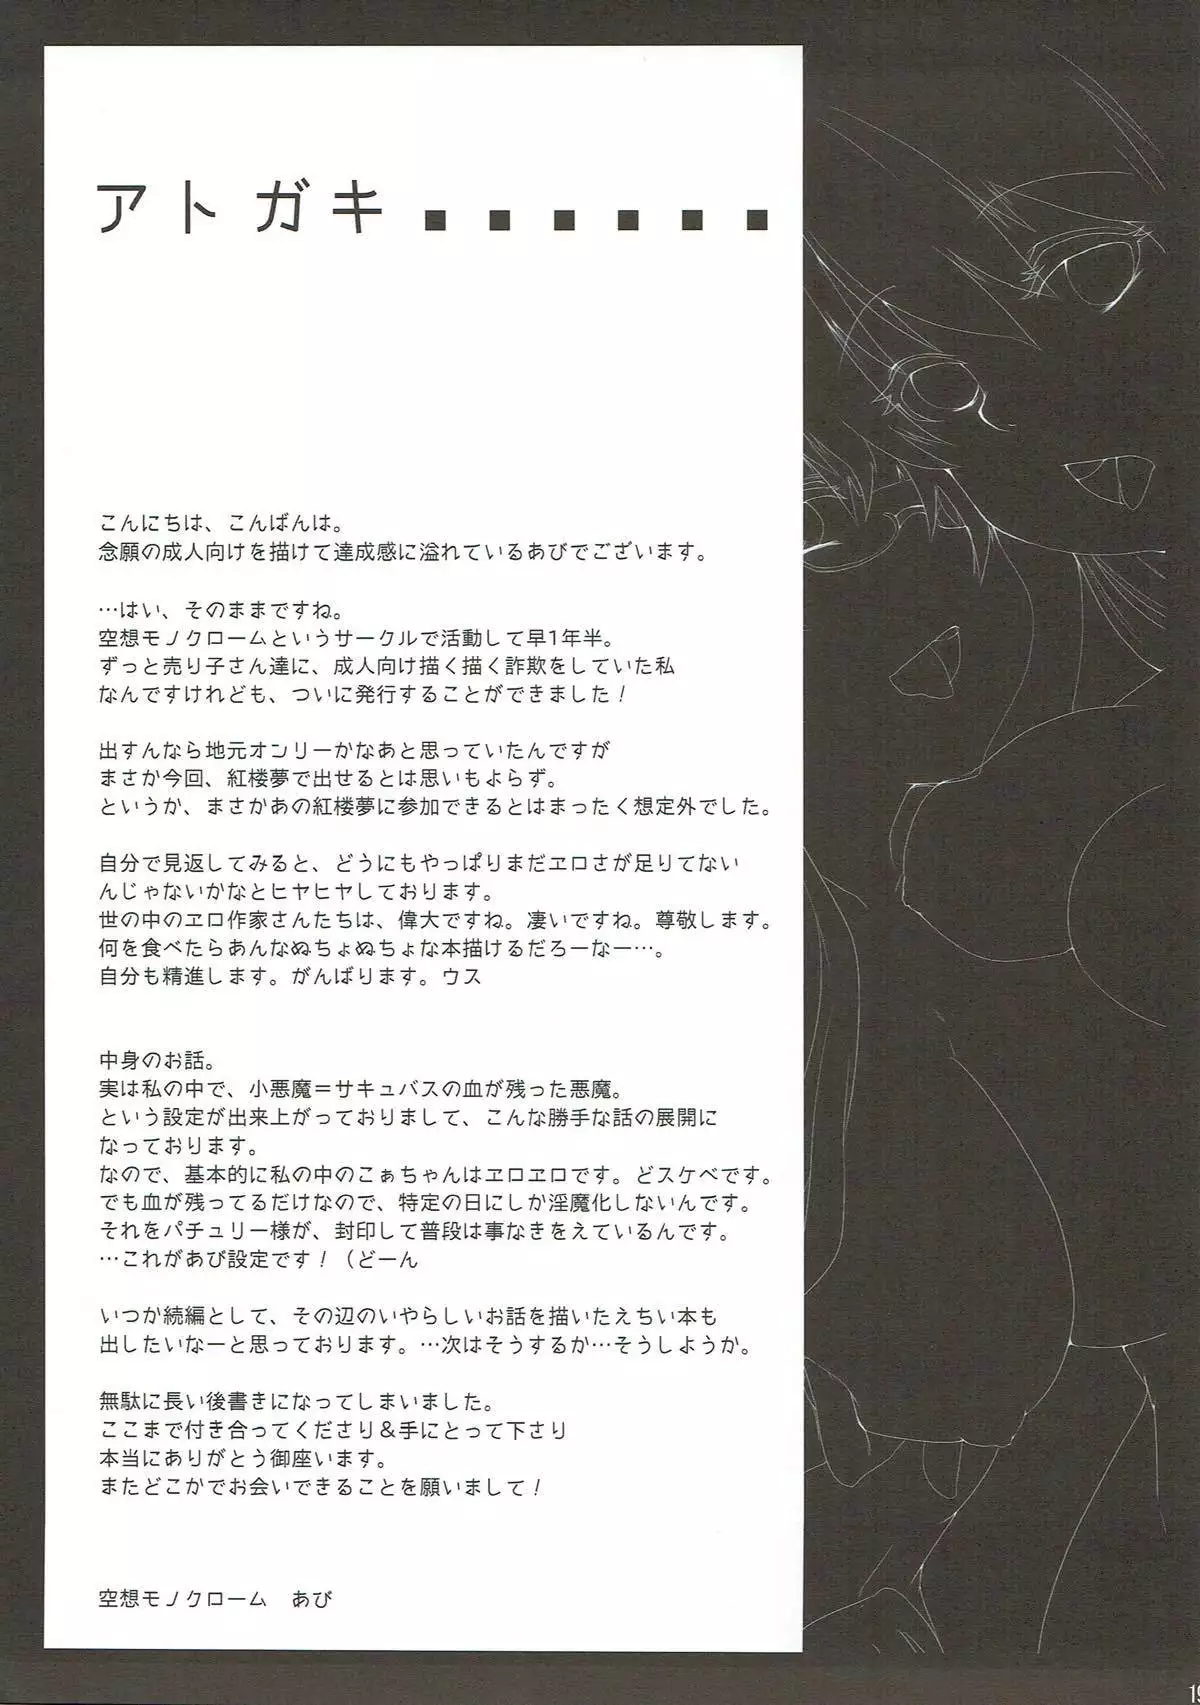 アトガキ．．．．．．
こんにちは、こんばんは。
念願の成人向けを描けて達成感に溢れているあびでございます。
…はい、そのままですね。
空想モノクロームというサークルで活動して早1年半。
ずっと売り子さん達に、成人向け描く描く詐欺をしていた私
なんですけれども、ついに発行することができました！
出すんなら地元オンリーかなあと思っていたんですが
まさか今回、紅楼夢で出せるとは思いもよらず。
というか、まさかあの紅楼夢に参加できるとはまったく想定外でした。
自分で見返してみると、どうにもやっぱりまだヱロさが足りてない
んじゃないかなとヒヤヒヤしております。
世の中のヱロ作家さんたちは、偉大ですね。凄いですね。尊敬します。
何を食べたらあんなぬちょぬちょな本描けるだろーなー…。
自分も精進します。がんばります。ウス
中身のお話。
実は私の中で、小悪魔＝サキュバスの血が残った悪魔。
という設定が出来上がっておりまして、こんな勝手な話の展開に
なっております。
なので、基本的に私の中のこぁちゃんはヱロヱロです。どスケベです。
でも血が残ってるだけなので、特定の日にしか淫魔化しないんです。
それをパチュリー様が、封印して普段は事なきをえているんです。
…これがあび設定です！（どーん
いつか続編として、その辺のいやらしいお話を描いたえちい本も
出したいなーと思っております。…次はそうするか…そうしようか。
無駄に長い後書きになってしまいました。
ここまで付き合ってくださり＆手にとって下さり
本当にありがとう御座います。
またどこかでお会いできることを願いまして！
空想モノクローム　あび